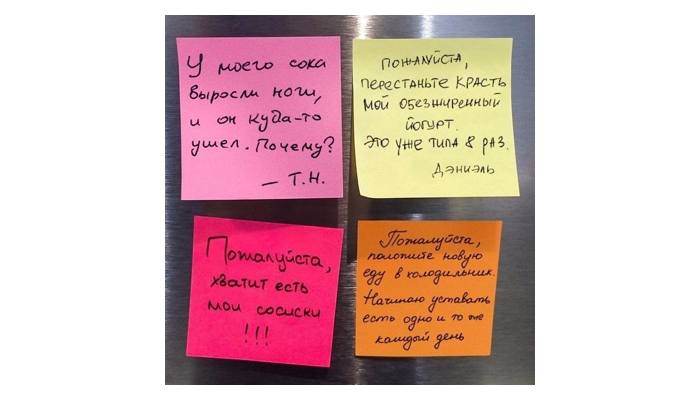 У моего сока
выросли ноги,
и он куда-то
ушел. Почему?
— Т.Н.
Пожалуйста,
перестаньте красть
мой обезжиренный
йогурт.
Это уже типа 8 раз.
Дэниэль
Пожалуйста,
хватит есть
мои сосиски
!!!
Пожалуйста,
положите новую
еду в холодильник.
Начинаю уставать
есть одно и то же
каждый день